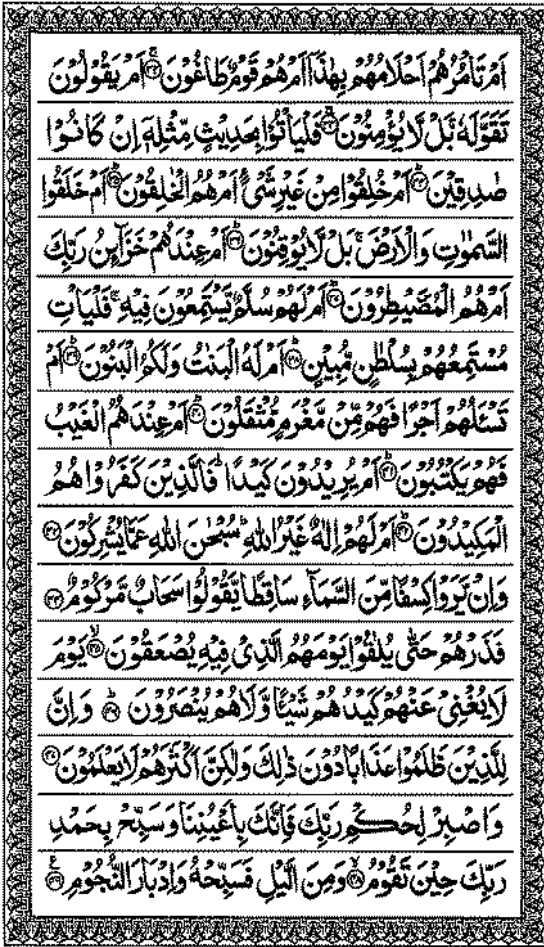 اَمْ تَاْمُرُهُمْ اَحْلَامُهُمْ بِهٰذَآ اَمْ هُمْ قَوْمٌ طَاغُوْنَ ۝۳۲ اَمْ يَقُوْلُوْنَ
تَقَوَّلَهٗ بَلْ لَّا يُؤْمِنُوْنَ ۝۳۳ فَلْيَاْتُوْا بِحَدِيْثٍ مِّثْلِهٖٓ اِنْ كَانُوْا
صٰدِقِيْنَ ۝۳۴ اَمْ خُلِقُوْا مِنْ غَيْرِ شَيْءٍ اَمْ هُمُ الْخٰلِقُوْنَ ۝۳۵ اَمْ خَلَقُوا
السَّمٰوٰتِ وَالْاَرْضَ ۚ بَلْ لَّا يُوْقِنُوْنَ ۝۳۶ اَمْ عِنْدَهُمْ خَزَآئِنُ رَبِّكَ
اَمْ هُمُ الْمُصَۜيْطِرُوْنَ ۝۳۷ اَمْ لَهُمْ سُلَّمٌ يَّسْتَمِعُوْنَ فِيْهِ ۚ فَلْيَاْتِ
مُسْتَمِعُهُمْ بِسُلْطٰنٍ مُّبِيْنٍ ۝۳۸ اَمْ لَهُ الْبَنٰتُ وَلَكُمُ الْبَنُوْنَ ۝۳۹ اَمْ
تَسْـَٔلُهُمْ اَجْرًا فَهُمْ مِّنْ مَّغْرَمٍ مُّثْقَلُوْنَ ۝۴۰ اَمْ عِنْدَهُمُ الْغَيْبُ
فَهُمْ يَكْتُبُوْنَ ۝۴۱ اَمْ يُرِيْدُوْنَ كَيْدًا ؕ فَالَّذِيْنَ كَفَرُوْا هُمُ
الْمَكِيْدُوْنَ ۝۴۲ اَمْ لَهُمْ اِلٰهٌ غَيْرُ اللّٰهِ ؕ سُبْحٰنَ اللّٰهِ عَمَّا يُشْرِكُوْنَ ۝۴۳
وَاِنْ يَّرَوْا كِسْفًا مِّنَ السَّمَآءِ سَاقِطًا يَّقُوْلُوْا سَحَابٌ مَّرْكُوْمٌ ۝۴۴
فَذَرْهُمْ حَتّٰى يُلٰقُوْا يَوْمَهُمُ الَّذِيْ فِيْهِ يُصْعَقُوْنَ ۝۴۵ يَوْمَ
لَا يُغْنِيْ عَنْهُمْ كَيْدُهُمْ شَيْـًٔا وَّلَا هُمْ يُنْصَرُوْنَ ۝۴۶ وَاِنَّ
لِلَّذِيْنَ ظَلَمُوْا عَذَابًا دُوْنَ ذٰلِكَ وَلٰكِنَّ اَكْثَرَهُمْ لَا يَعْلَمُوْنَ ۝۴۷
وَاصْبِرْ لِحُكْمِ رَبِّكَ فَاِنَّكَ بِاَعْيُنِنَا وَسَبِّحْ بِحَمْدِ
رَبِّكَ حِيْنَ تَقُوْمُ ۝۴۸ وَمِنَ الَّيْلِ فَسَبِّحْهُ وَاِدْبَارَ النُّجُوْمِ ۝۴۹